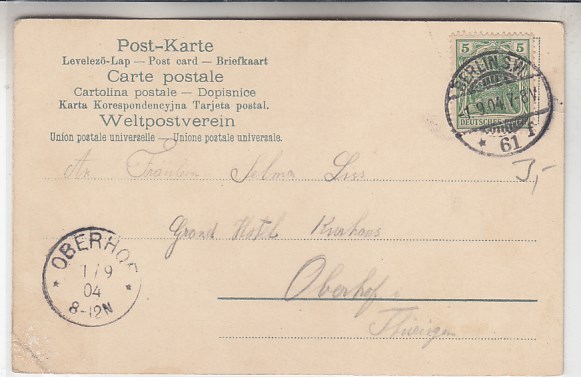 Post-Karte
Levelező-Lap — Post card — Briefkaart
Carte postale
Cartolina postale — Dopisnice
Karta Korespondencyjna Tarjeta postal.
Weltpostverein
Union postale universelle — Unione postale universale.
5 5
DEUTSCHES
BERLIN S.W.
1.9.04.7-8V.
* 61 f
3,-
An Fräulein Selma
Grand Hotel Kurhaus
Oberhof.
Thüringen
OBERHOF
1/9
04
8-12N